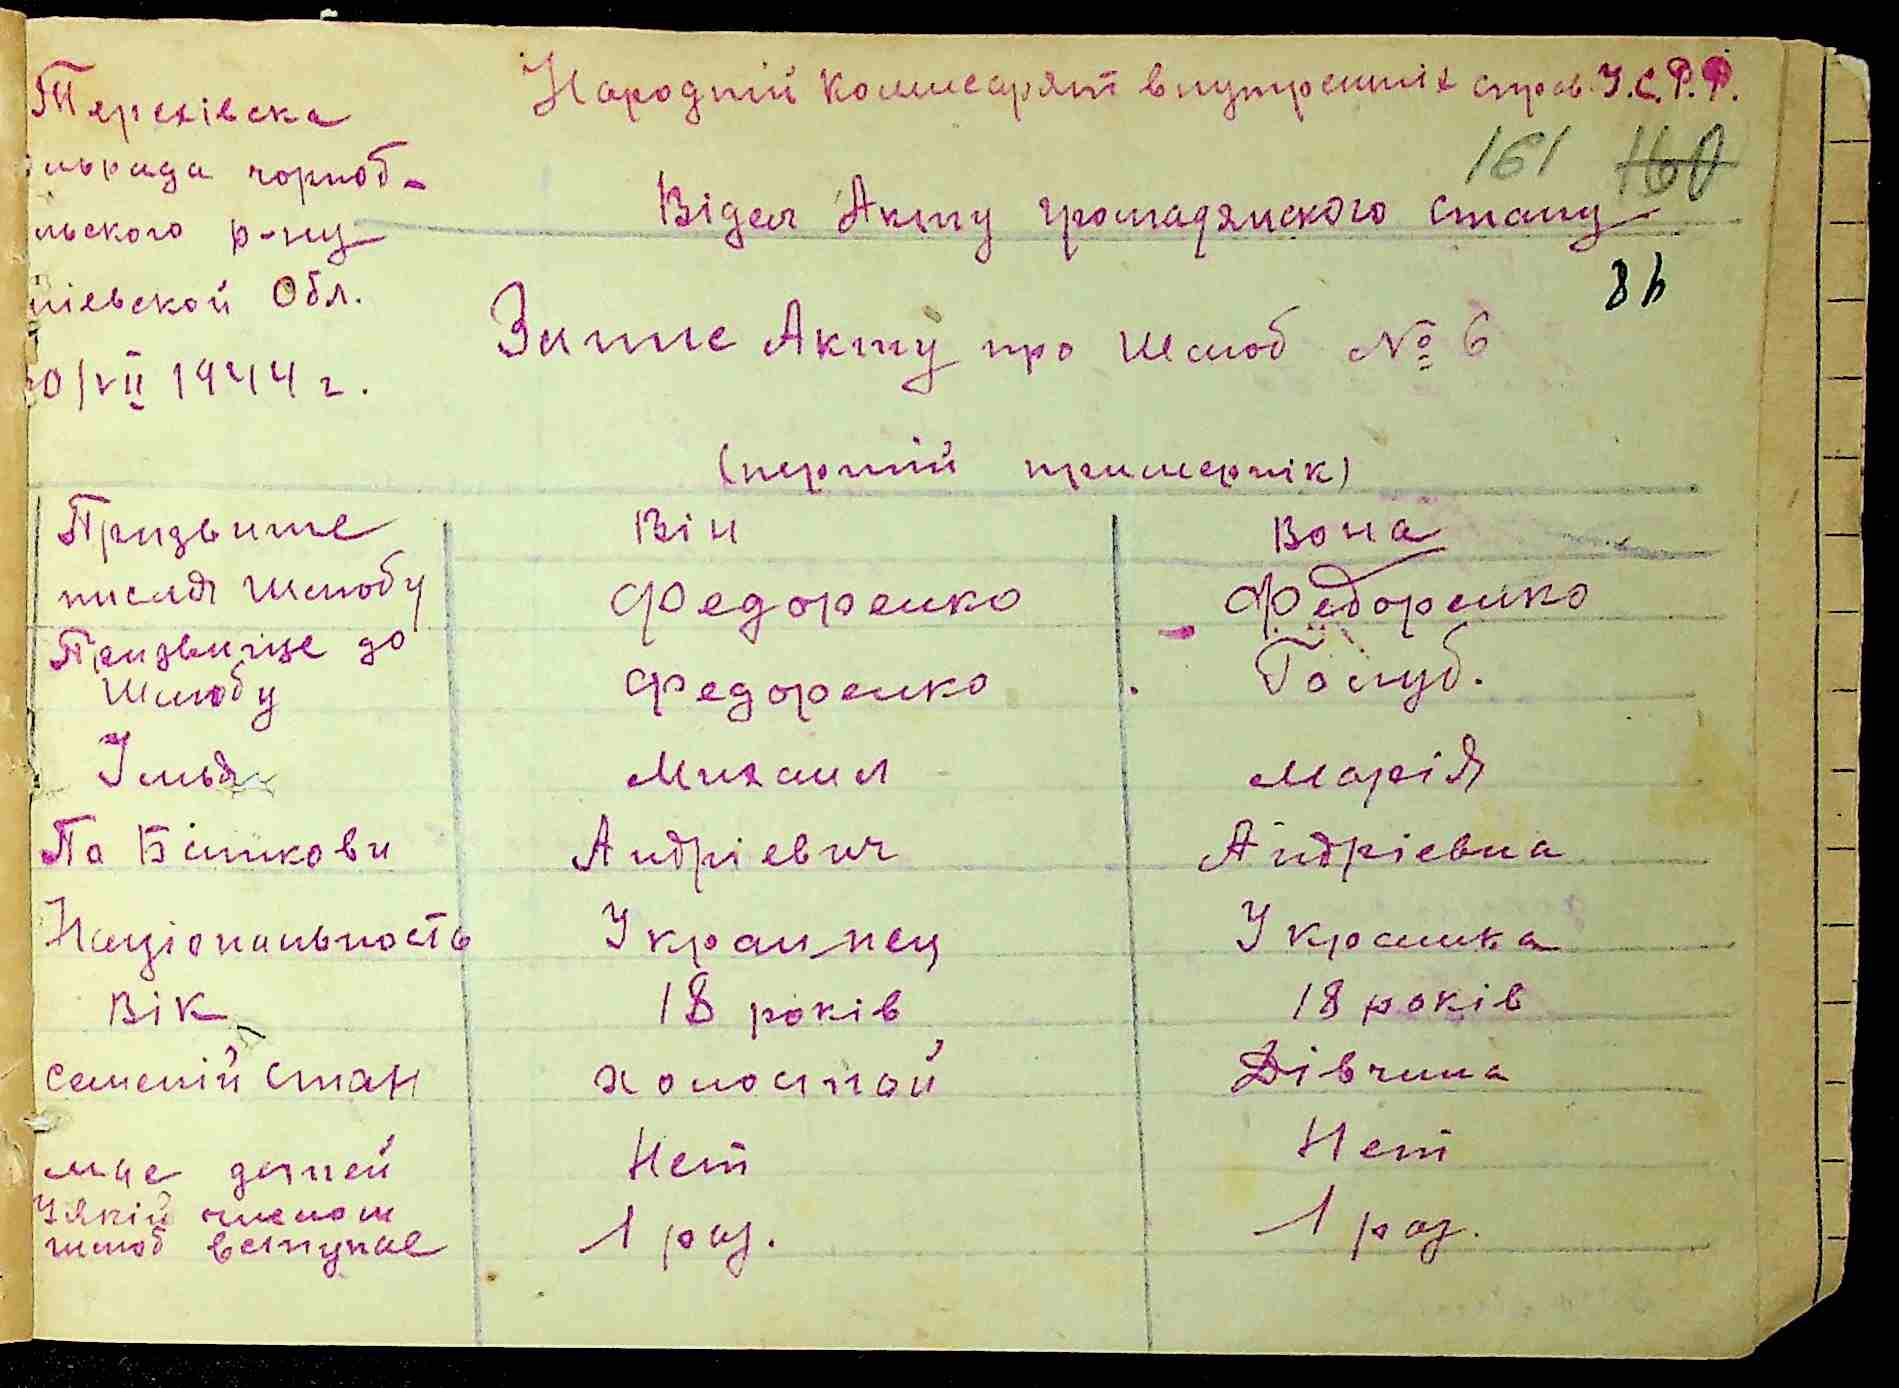 Терехівска
ільрада чорноб-
льского р-ну
иівской Обл.
0/VII 1944 г.
Народній Коммісаріят внутренніх справ У.С.Р.Р.
161 160
Відел Акту громадянского стану
8h
Запис Акту про Шлюб № 6
(першій примернік)
Призвище Він Вона
писля Шлюбу Федоренко Федоренко
Призвище до
Шлюбу Федоренко Голуб.
Імья Михаил Марія
По Батькови Андріевич Андріевна
Національность Украинец Украинка
Вік 18 років 18 років
Семеній Стан холостой Дівчина
має детей Нет Нет
У якій числом
шлюб вступае 1 раз. 1 раз.